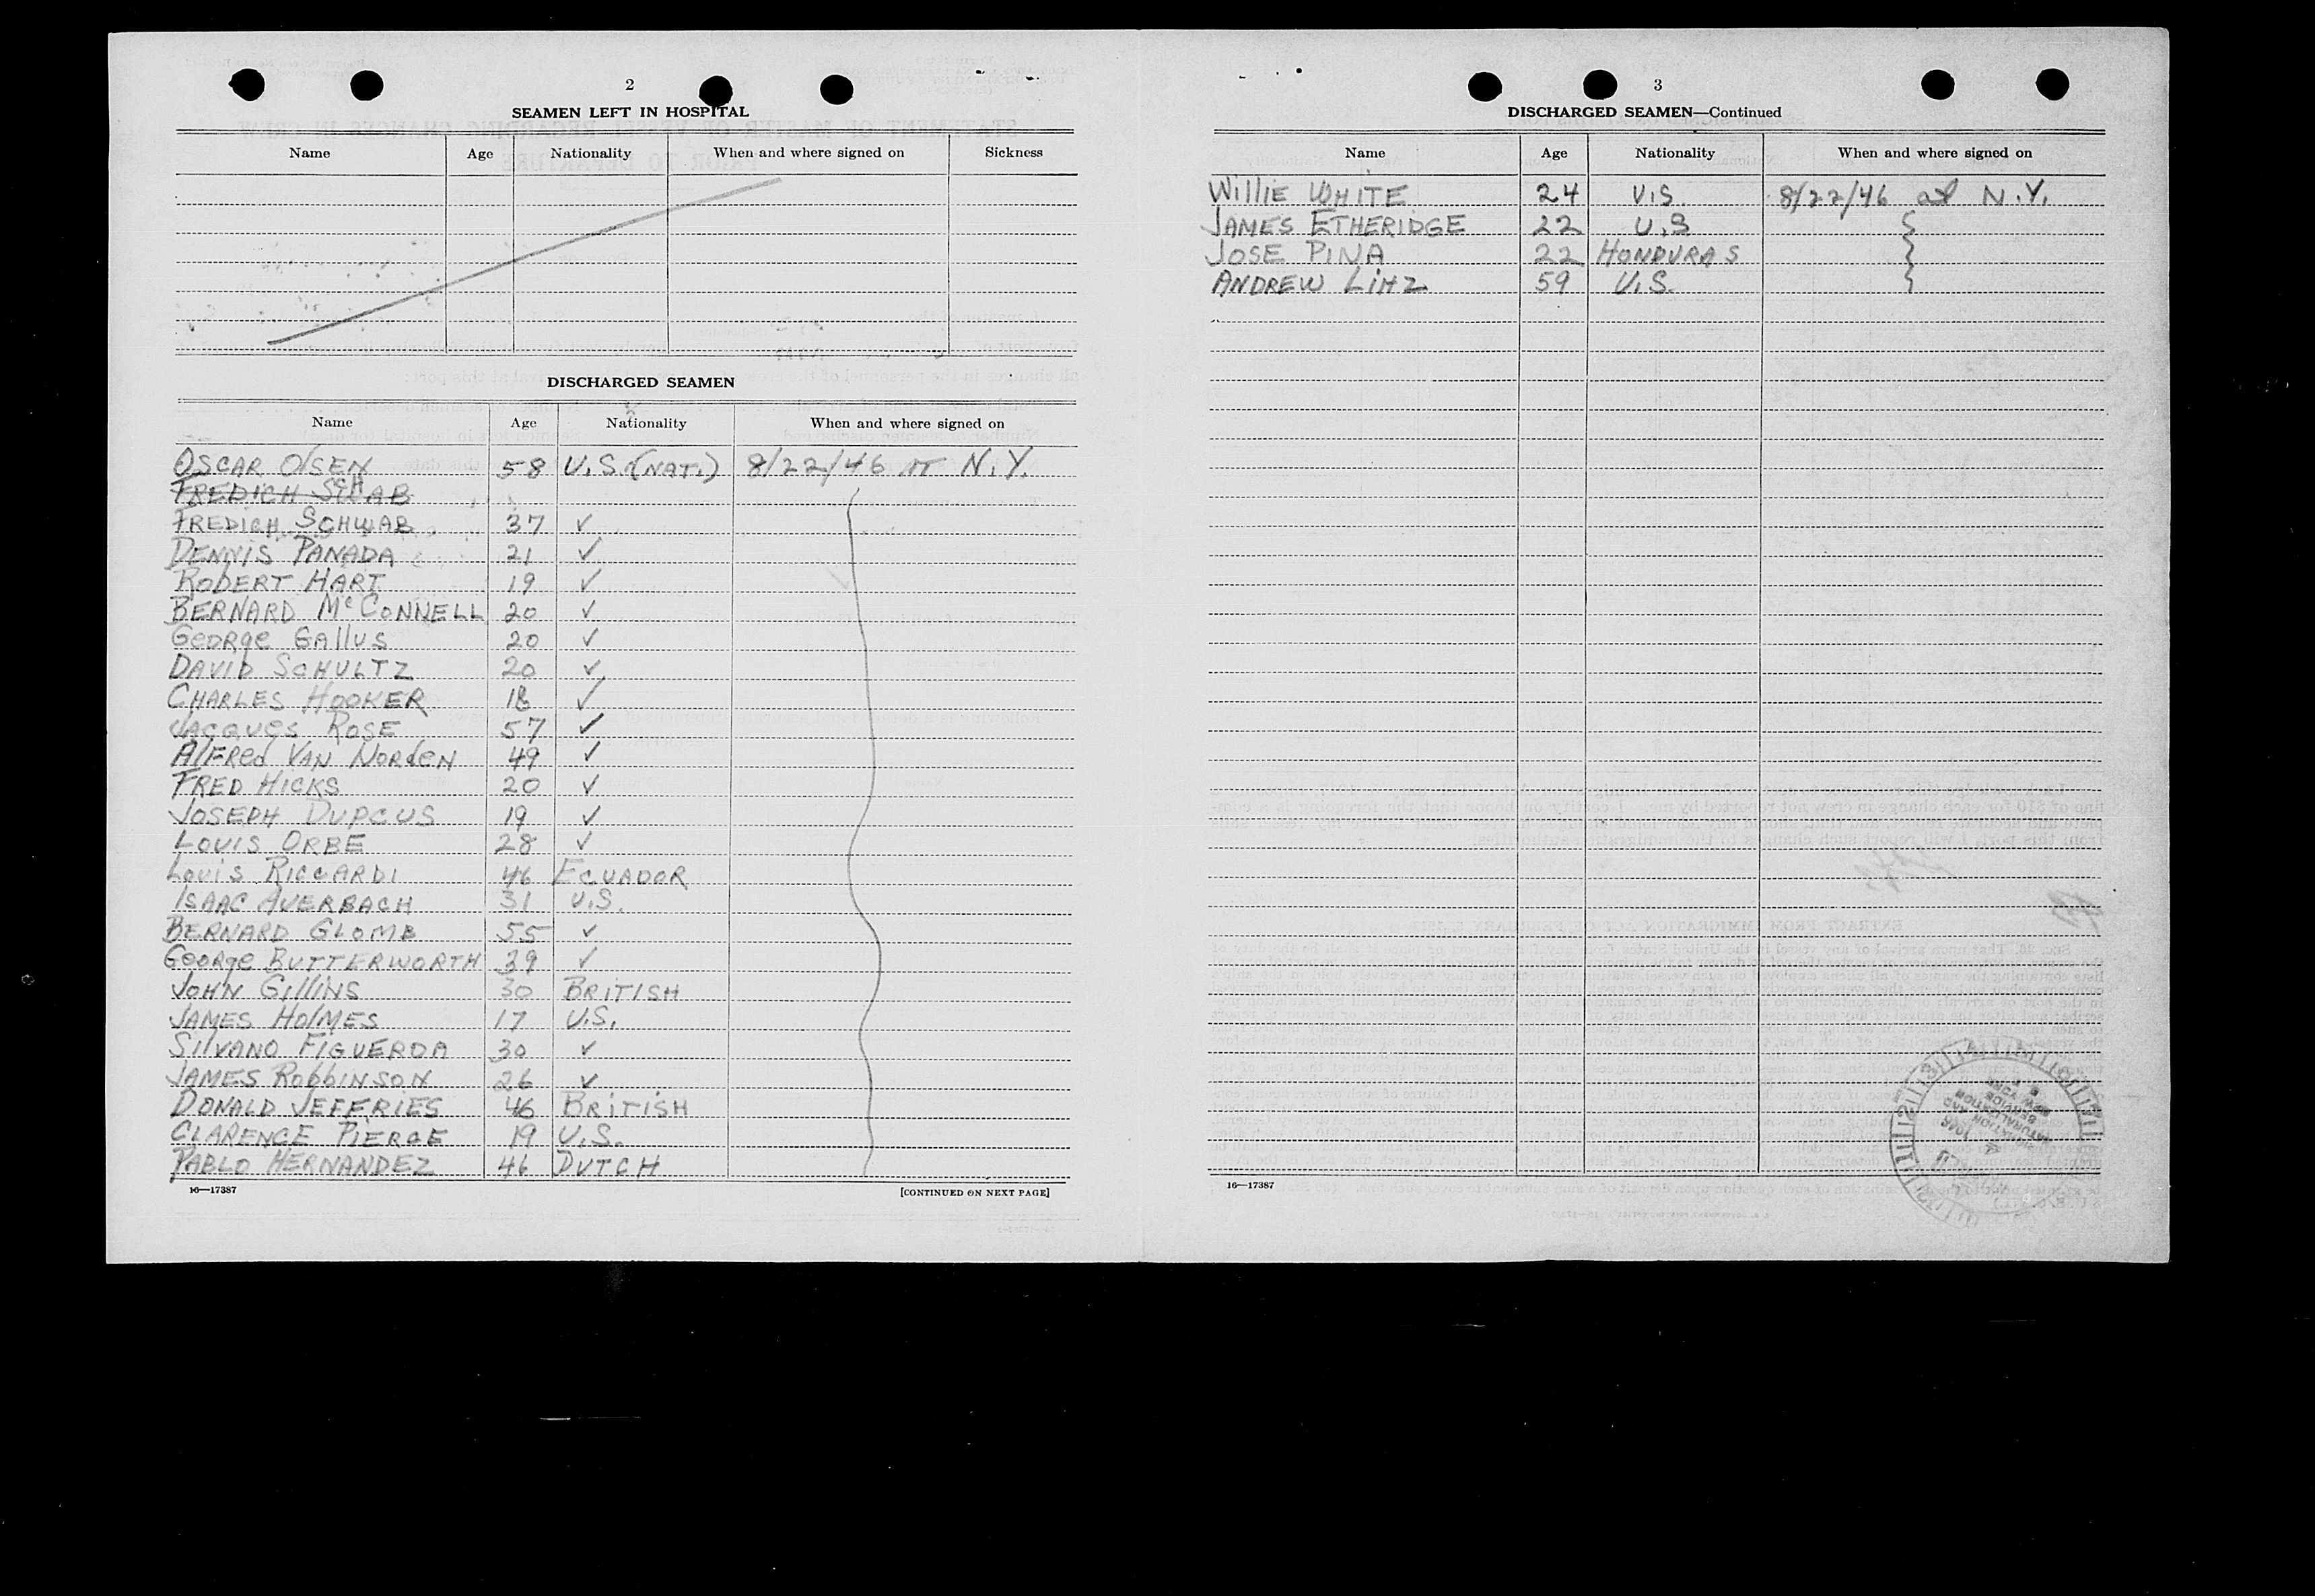 2
SEAMEN LEFT IN HOSPITAL
Name Age Nationality When and where signed on Sickness
DISCHARGED SEAMEN
Name Age Nationality When and where signed on
OSCAR OlSEN 58 U.S. (NAT.) 8/22/46 AT N.Y.
FREDICH
FREDICH SCHWAB 37 ✓
DENNIS PANADA 21 ✓
ROBERT HART 19 ✓
BERNARD McCONNELL 20 ✓
GeORge GAllUS 20 ✓
DAVID SCHULTZ 20 ✓
CHARLES HOOKER 18 ✓
JACQUES ROSE 57 ✓
AlFRed VAN NORdeN 49 ✓
FRED HICKS 20 ✓
JOSEPH DUPCUS 19 ✓
LOUIS ORBE 28 ✓
LOUIS RICCARDI 46 ECUADOR
ISAAC AUERBACH 31 U.S.
BERNARD GLOMB 55 ✓
GeORge BUTTERWORTH 39 ✓
JOHN GIllINS 30 BRITISH
JAMES HOlMES 17 U.S.
SIlVANO FIGUEROA 30 ✓
JAMES RObbINSON 26 ✓
DONALD JEFFERIES 46 BRITISH
CLARENCE PIERCE 19 U.S.
PABLO HERNANDEZ 46 DUTCH
16—17387 [CONTINUED ON NEXT PAGE]
3
DISCHARGED SEAMEN—Continued
Name Age Nationality When and where signed on
WIllIE WHITE 24 U.S. 8/22/46 at N.Y.
JAMES ETHERIDGE 22 U.S
JOSE PINA 22 HONDURAS
ANDREW LINZ 59 U.S.
16—17387